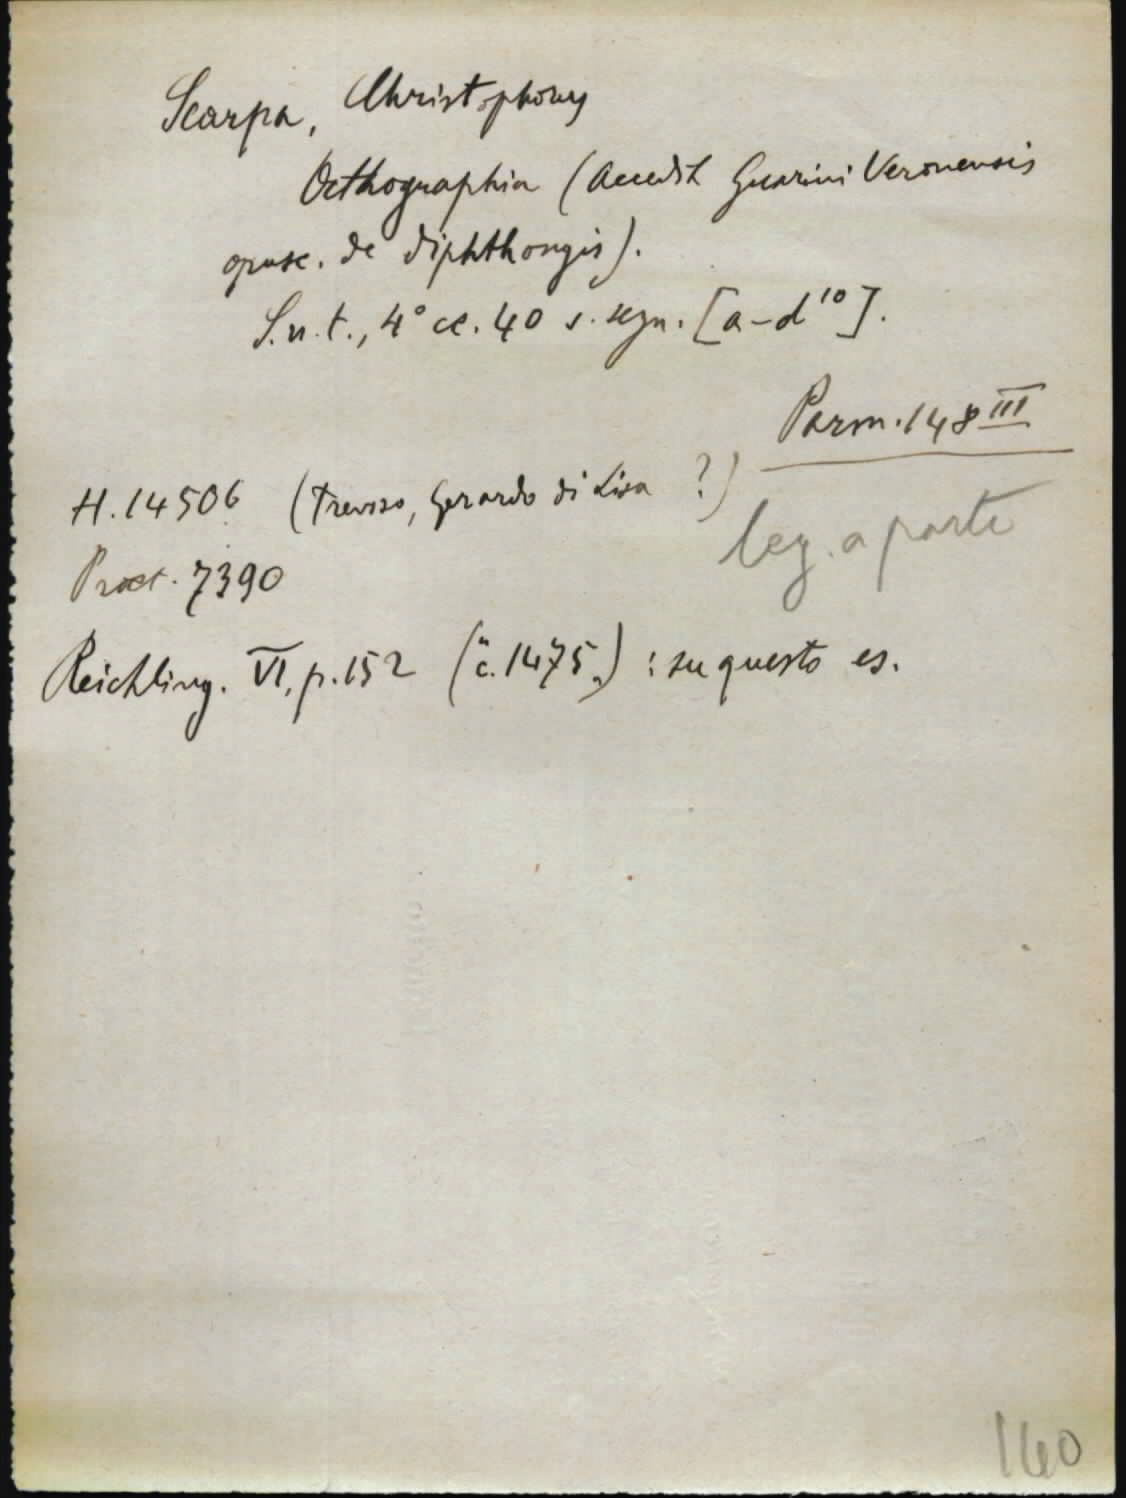 Scarpa, Christophorus
Orthographia (Accedit Guarini Veronensis
opusc. de diphthongis).
S.n.t., 4° cc. 40 s. segn. [a-d¹⁰].
Parm. 148 III
H. 14506 (Treviso, Gerardo di Lisa ?)
leg. a parte
Proct. 7390
Reichling. VI, p. 152 ("c. 1475") : su questo es.
140